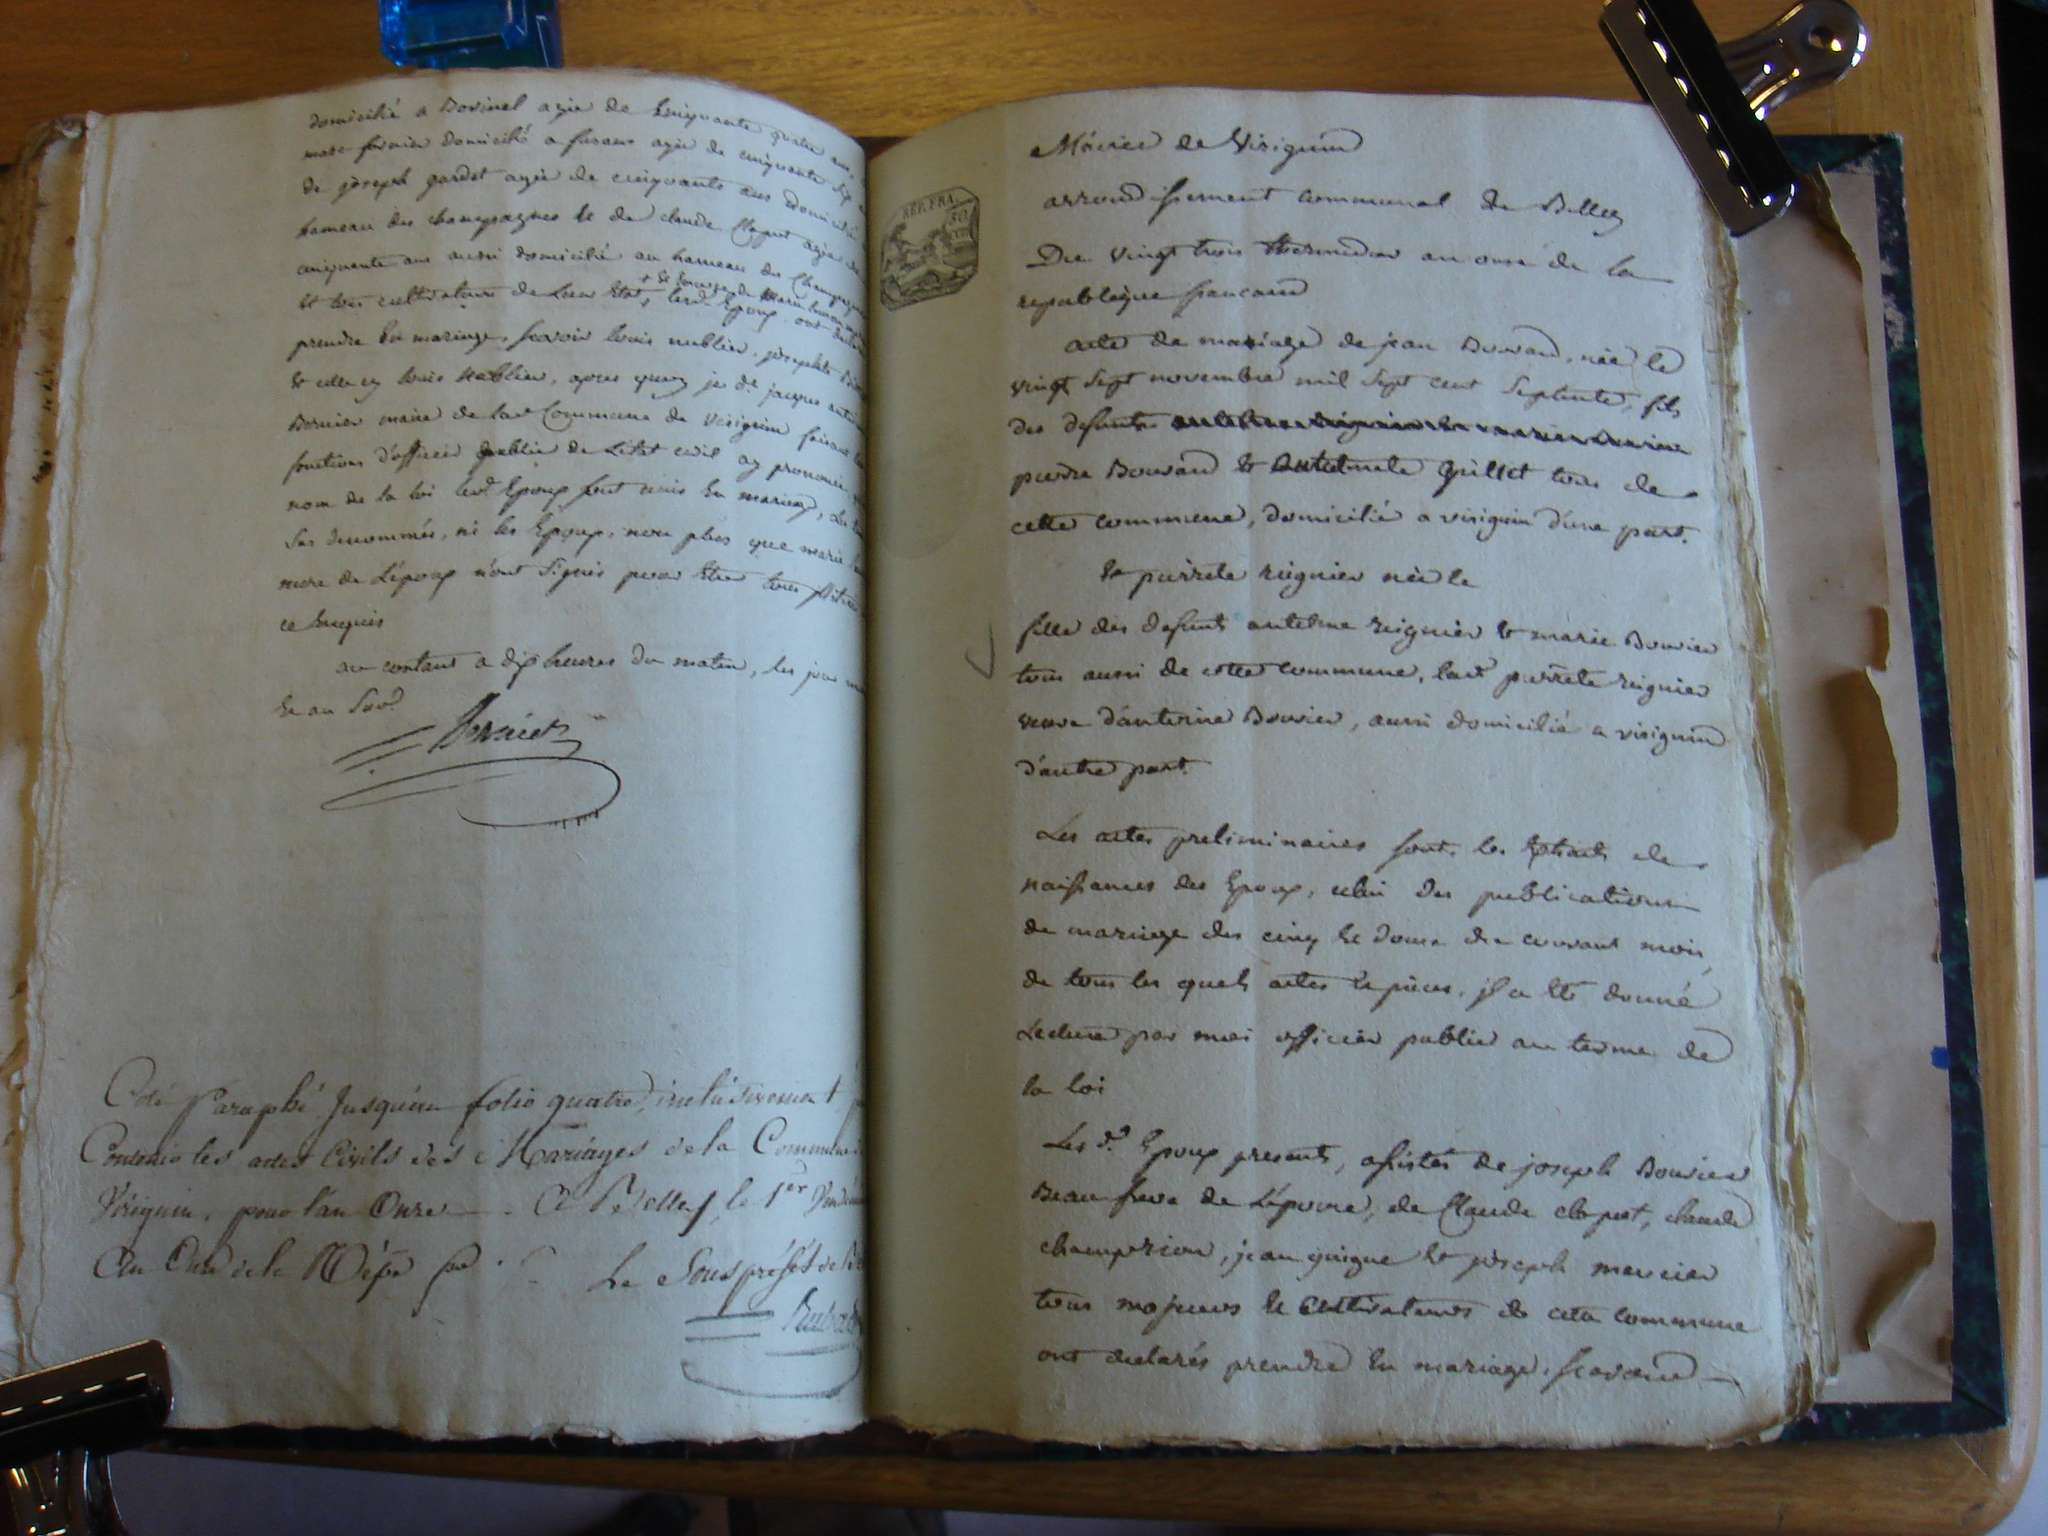 domicilié a Borinel agée de Cinquante quatre ans,
marc fornier domicilié a furans agée de cinquante dix
de joseph gardet agée de cinquante ans domicilié
hameau des champagnes & de claude Clapot agée de
cinquante ans aussi domicilié au hameau des Champagnes
+ & George de
& tous cultivateurs de Leur Etat, lesd. Epoux ont declaré
prendre En mariage, scavoir louis nublier, josephte
& celle cy louis Nublier, apres quoy je dt. jacques antoine
Bernier maire de lad. Commune de virignin faisant les
fonctions d'officier public de L'etat civil ay prononcé
nom de la loi lesd. Epoux sont unis En mariage, Les
sus denommés, ni les Epoux, non plus que marie
mere de L'époux n'ont signés pour Etre tous illitérés
ce Enquis
au contant a dix heures du matin, les jour mois
& an Susd.
Bernier
Coté Paraphé Jusqu'au folio quatre, inclusivement
Contenir les actes Civils des Mariages de la Commune
Virignin, pour l'an Onze. A Belley, le 1er Vendém
An Onze de la Rép. fse.
Le Sous préfet de
REP. FRA.
50
CEN
Mairie de Virignin
arrondissement communal de Belley
Du vingt trois thermidor an onze de la
republique francaise
acte de mariage de jean Bouvard, née le
vingt sept novembre mil sept cent septente, fils
des defunts
pierre Bouvard & Antelmete Gillet tous de
cette commune, domicilié a virignin d'une part.
& pierrete reignier née le
fille des defunts antelme reignier & marie Bouvier
tous aussi de cette commune, lad. pierrete reignier
veuve d'antoine Bouvier, aussi domicilié a virignin
d'autre part.
Les actes preliminaires sont les Extraits de
naissances des Epoux, celui des publications
de mariage des cinq & douze du courant mois,
de tous les quels actes & pieces, jl a Eté donné
Lecture par moi officier public au terme de
la loi
Les d. Epoux presents, assistés de joseph Bouvier
Beau frere de L'épouse, de Claude clapot, claude
champrion, jean guigue & joseph mercier
tous majeurs & cultivateurs de cette commune
ont declarés prendre En mariage, scavoir